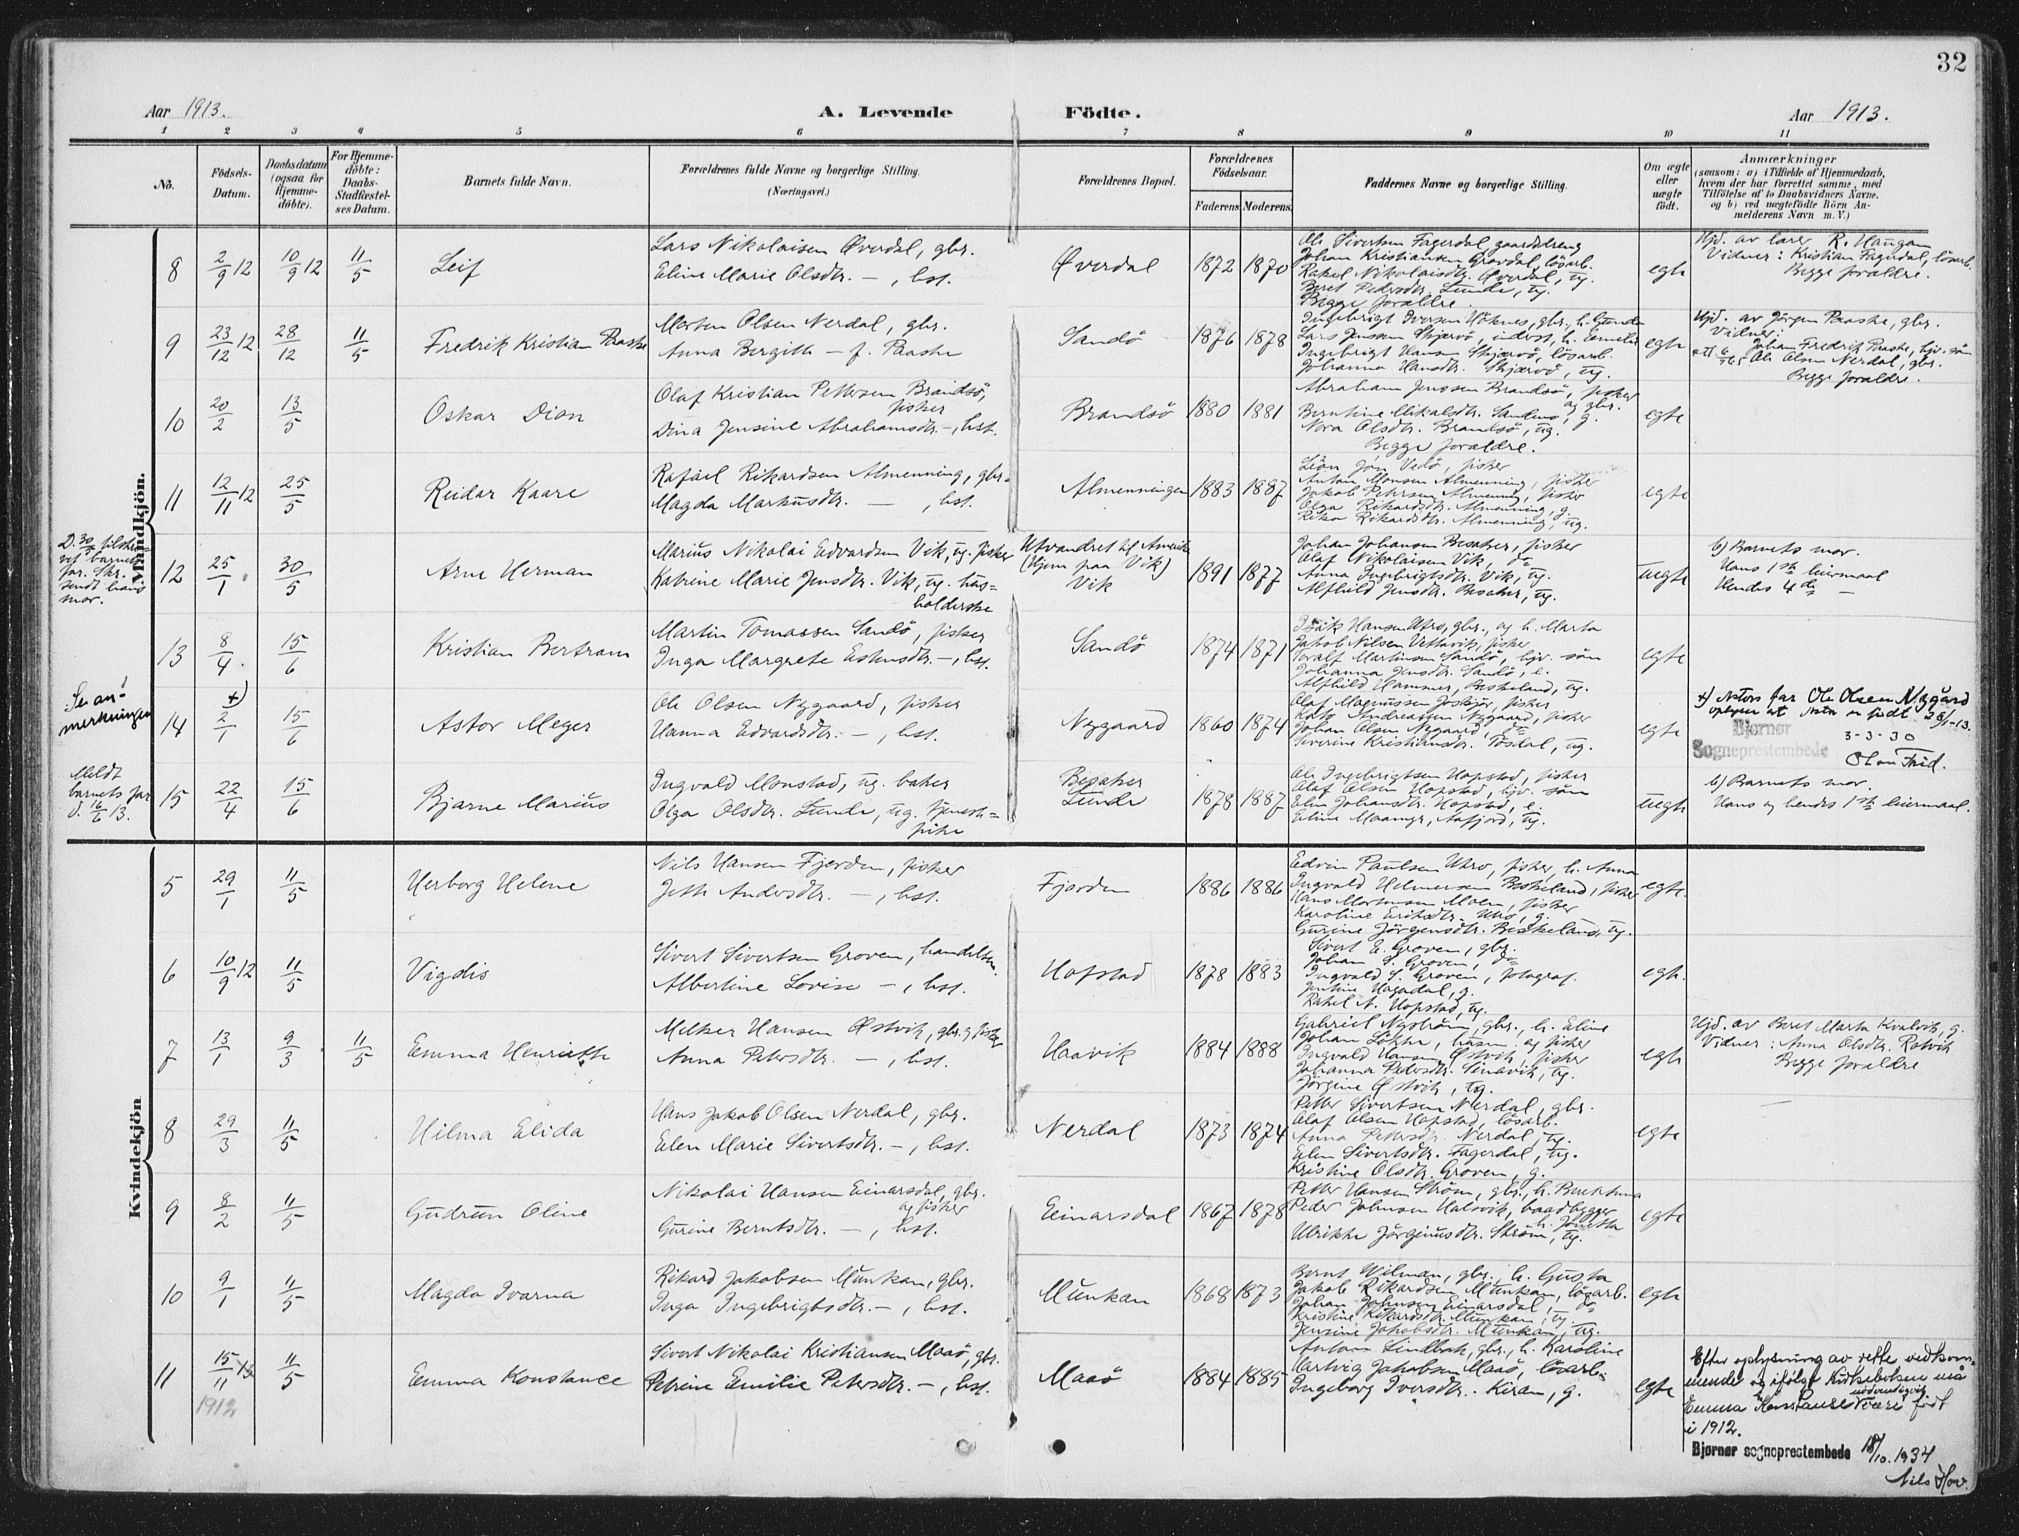 32
Aar 1913.
A. Levende Födte.
Aar 1913.
1 2 3 4 5 6 7 8 9 10 11
No.
Födsels-
Datum.
Daabsdatum
(ogsaa for
Hjemme-
döbte).
For Hjemme-
döbte:
Daabs-
Stadfæstel-
ses Datum.
Barnets fulde Navn.
Forældrenes fulde Navne og borgerlige Stilling.
(Næringsvei.)
Forældrenes Bopæl.
Forældrenes
Födselsaar.
Faderens. Moderens.
Faddernes Navne og borgerlige Stilling.
Om ægte
eller
uægte
födt.
Anmærkninger
(saasom: a) i Tilfælde af Hjemmedaab,
hvem der har forrettet samme, med
Tilföielse af to Daabsvidners Navne.
og b) ved uægtefödte Börn An-
melderens Navn m. V.)
Mandkjön.
8 2/9 12 10/9 12 11/5 Leif
Lars Nikolaisen Øverdal, gbr.
Eline Marie Olsdtr. — , hst.
Øverdal 1872 1870
Ole Sivertsen Fagerdal gaardsdreng
Johan Kristiansen Grovdal, lösarb.
Rakel Nikolaisdtr. Øverdal, ug.
Beret Pedersdtr. Lunde, ug.
Begge forældre.
egte
Hjd. av lærer R. Haugan
Vidner: Kristian Fagerdal, lösarb.
Begge forældre.
9 23/12 12 28/12 11/5 Fredrik Kristian Paaske
Morten Olsen Nerdal, gbr.
Anna Bergitte — f. Paaske
Sandö 1876 1878
Ingebrigt Iversen Höknes, gbr., h. Gunda
Lars Jensen Skjærvö, inderst, h. Emelie
Ingebrigt Hansen Skjærvö, lösarb.
Johanna Hansdtr. Skjærvö, ug.
egte
Hjd. av Jörgen Paaske, gbr.
Vidner:
Johan Fredrik Paaske, hjv. sön
Ole Olsen Nerdal, gbr.
Begge forældre.
10 20/2 13/5 Oskar Dion
Olaf Kristian Pettersen Brandsö,
fisker
Dina Jensine Abrahamsdtr. —, hst.
Brandsö 1880 1881
Abraham Jensen Brandsö, fisker
og gbr.
Berntine Mikalsdtr. Sandmo, g.
Nora Olsdtr. Brandsö, ug.
Begge forældre.
egte
11 12/11 12 25/5 Reidar Kaare
Rafael Rikardsen Almenning, gbr.
Magda Markusdtr. — , hst.
Almenningen 1883 1887
Anton Monsen Almenning, fisker
Jakob Petersen Almenning, fisker
Olga Rikardsdtr. Almenning, g.
Rika Rikardsdtr. Almenning, ug.
egte
D. 30/5 tilskre-
vet barnets
far. Skr.
sendt hans
mor.
12 25/1 30/5 Arne Herman
Marius Nikolai Edvardsen Vik, ug. fisker
Katrine Marie Jensdtr. Vik, ug. hus=
holderske
Utvandret til Amerika
(Hjem paa Vik)
Vik
1891 1877
Johan Johansen Besaker, fisker
Olaf Nikolaisen Vik, do
Anna Ingebrigtsdtr. Vik, ug.
Alfhild Jensdtr. Besaker, ug.
uegte
b) Barnets mor.
Hans 1ste leiermaal
Hendes 4de —
13 8/4. 15/6 Kristian Bertram
Martin Tomassen Sandö, fisker
Inga Margrete Estensdtr. —, hst.
Sandö 1874 1871
Isak Hansen Utro, gbr., og h. Marta
Jakob Nilsen Vettavik, fisker
Toralf Martinsen Sandö, hjv. sön
Johanna Jensdtr. Sandö, e.
Alfhild Hammer, Beskeland, ug.
egte
Se an-
merkningen!
14 2/1 +) 15/6 Astor Meyer
Ole Olsen Nygaard, fisker
Hanna Edvardsdtr. — , hst.
Nygaard 1860 1874
Olaf Magnussen Joskjör, fisker
Kato Andreassen Nygaard, fisker
Johan Olsen Nygaard, do
Severine Kristiansdtr. Tösdal, ug.
egte
+) Astors far Ole Olsen Nygård
oplyser at Astor er født 28/1-13.
Bjørnør
Sogneprestembede
3-3-30
Meldt
barnets far
d. 16/6 13.
15 22/4 15/6 Bjarne Marius
Ingvald Monstad, ug. baker
Olga Olsdtr. Lunde, ug. tjeneste-
pike
Besaker
Lunde
1878 1887
Ole Ingebrigtsen Hopstad, fisker
Olaf Olsen Hopstad, hjv. sön
Elen Johansdtr. Hopstad, e.
Eline Moamyr, Aafjord, ug.
uegte
b) Barnets mor.
Hans og hendes 1ste leiermaal.
Kvindekjön
5 29/1 11/5 Herborg Helene
Nils Hansen Fjorden, fisker
Jette Andersdtr. — , hst.
Fjorden 1886 1886
Edvin Paulsen Utro, fisker, h. Anna
Ingvald Helmersen Beskeland, fisker
Hans Mortensen Moen, fisker
Karoline Eriksdtr. Utro, g.
Gurine Jörgensdtr. Beskeland, ug.
egte.
6 10/9 12 11/5 Vigdis
Sivert Sivertsen Groven, handelsm.
Albertine Lovise — , hst.
Hofstad 1878 1883
Sivert E. Groven, gbr.
Johan S. Groven, do
Ingvald S. Groven, fotograf.
Jentine Hagadal, g.
Rakel A. Hopstad, ug.
egte.
7 13/1 9/3 11/5 Emma Henriette
Melker Hansen Østvik, gbr. og fisker
Anna Petersdtr. — , hst.
Haavik 1884 1888
Gabriel Nyström, gbr., h. Eline
Johan Løkke, husm. og fisker
Ingvald Hansen Østvik, fisker
Johanna Petersdtr. Sumavik, ug.
Jörgine Østvik, ug.
egte
Hjd. av Beret Marta Kvalvik, g.
Vidner: Anna Olsdtr. Ratvik
Begge forældre
8 29/3 11/5 Hilma Elida
Hans Jakob Olsen Nerdal, gbr.
Elen Marie Sivertsdtr. —, hst.
Nerdal 1873 1874
Petter Sivertsen Nerdal, gbr.
Olaf Olsen Hopstad, lösarb.
Anna Petersdtr. Nerdal, ug.
Elen Sivertsdtr. Fagerdal, ug.
Kristine Olsdtr. Groven, g.
egte
9 8/2 11/5 Gudrun Oline
Nikolai Hansen Einarsdal, gbr.
og fisker
Gurine Berntsdtr. — , hst.
Einarsdal 1867 1878
Petter Hansen Ström, gbr., h. Berektina
Peder Johnsen Halsvik, baadbygger
h. Jonetta
Ulrikke Jörginusdtr. Ström, ug.
egte
10 9/1 11/5 Magda Ivarna
Rikard Jakobsen Munkan, gbr.
Inga Ingebrigtsdtr. — , hst.
Munkan 1868 1873
Bernt Wilman, gbr. h. Gusta
Jakob Rikardsen Munkan, lösarb.
Johan Johnsen Einarsdal, do
Kristine Rikardsdtr. Munkan, ug.
Jensine Jakobsdtr. Munkan, ug.
egte
11 15/11 13 11/5 Emma Konstance
1912
Sivert Nikolai Kristiansen Maaö, gbr.
Petrine Emilie Petersdtr. —, hst.
Maaö 1884 1885
Anton Lindbak, gbr., h. Karoline
Hartvig Jakobsen Maaö, lösarb.
Ingeborg Iversdtr. Kiran, g.
egte
Efter oplysning av rette vedkom-
mende og ifølge Kirkeboken må
nødvendigvis
Emma Konstanse være født
i 1912.
Bjørnør sogneprestembede 18/10.1934
Nils Hov.